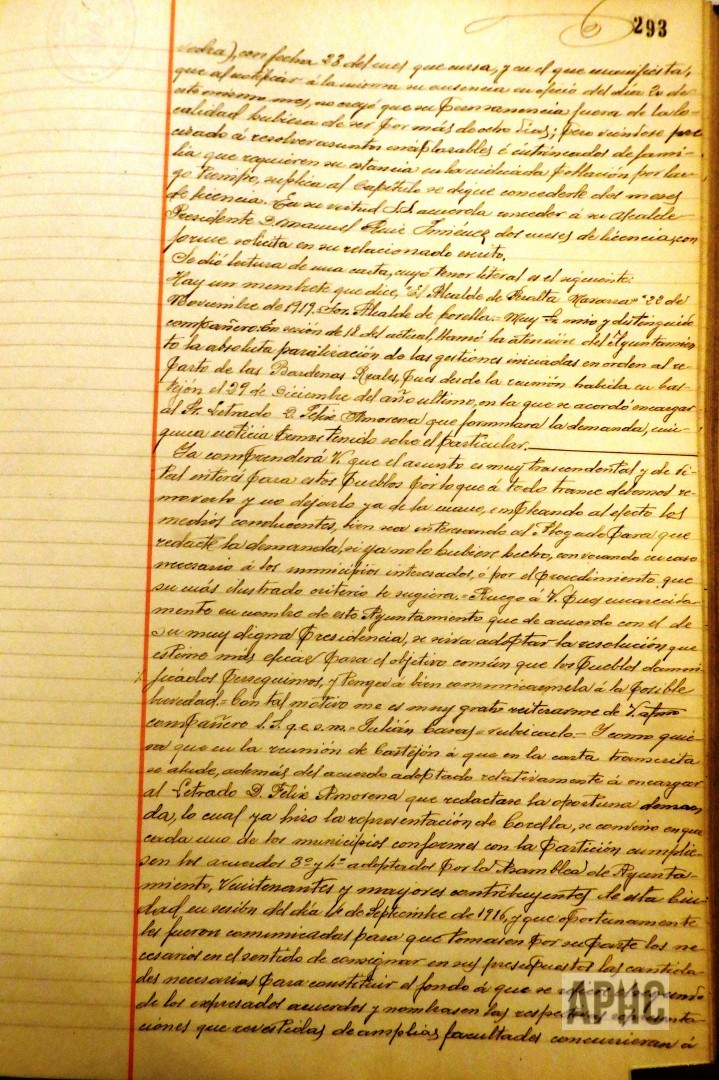 293
vedra), con fecha 23 del mes que cursa, y en el que manifiesta,
que al noticiar á la misma su ausencia en oficio del dia 20 de
este mismo mes, no creyó que su permanencia fuera de la lo-
calidad hubiera de ser por más de ocho dias; pero viéndose pre-
cisado á resolver asuntos inaplazables é intrincados de fami-
lia que requieren su estancia en la indicada población por lar-
go tiempo, suplica al Capitulo se digne concederle dos meses
de licencia. En su virtud S.S. acuerda conceder á su Alcalde
Presidente D. Manuel Ruiz Jiménez dos meses de licencia, con
forme solicita en su relacionado escrito.
Se dió lectura de una carta, cuyo tenor literal es el siguiente:
Hay un membrete que dice, "El Alcalde de Peralta Navarra" "22 de
Noviembre de 1919. Sor. Alcalde de Corella.= Muy Sr. mio y distinguido
compañero: En sesión de 18 del actual, llamó la atención del Ayuntamien
to la absoluta paralización de las gestiones iniciadas en orden al re-
parto de las Bardenas Reales, pues desde la reunión habida en Cas-
tejón el 29 de Diciembre del año ultimo, en la que se acordó encargar
al Sr. Letrado D. Felix Amorena que formulara la demanda, nin-
guna noticia hemos tenido sobre el particular.
Ya comprenderá V. que el asunto es muy trascendental y de vi-
tal interés para estos pueblos por lo que á todo trance debemos re-
moverlo y no dejarlo ya de la mano, empleando al efecto los
medios conducentes, bien sea interesando al Abogado para que
redacte la demanda, si ya no lo hubiere hecho, convocando en caso
necesario á los municipios interesados, ó por el procedimiento que
su más ilustrado criterio le sugiera.= Ruego á V. pues encarecida-
mente en nombre de este Ayuntamiento que de acuerdo con el de
su muy digna presidencia, se sirva adoptar la resolución que
estime más eficaz para el objetivo común que los pueblos damni-
ficados perseguimos, y tenga á bien comunicarmela á la posible
brevedad.= Con tal motivo me es muy grato reiterarme de V. atmo
compañero s.s. q. e. s. m.= Julián = Y como quie-
ra que en la reunión de Castejón á que en la carta transcrita
se alude, además del acuerdo adoptado relativamente á encargar
al Letrado D. Felix Amorena que redactase la oportuna deman
da, lo cual ya hizo la representación de Corella, se convino en que
cada uno de los municipios conformes con la partición cumplie-
sen los acuerdos 3º y 4º adoptados por la Asamblea de Ayunta-
miento, Veintenantes y mayores contribuyentes de esta Ciu-
dad en sesión del día 14 de Septiembre de 1916, y que oportunamente
les fueron comunicadas para que tomasen por su parte los ne-
cesarios en el sentido de consignar en sus presupuestos las cantida-
des necesarias para constituir el fondo á que se segundo
de los expresados acuerdos y nombrasen las respectivas representa
ciones que revestidas de amplias facultades concurrieran á
APHC